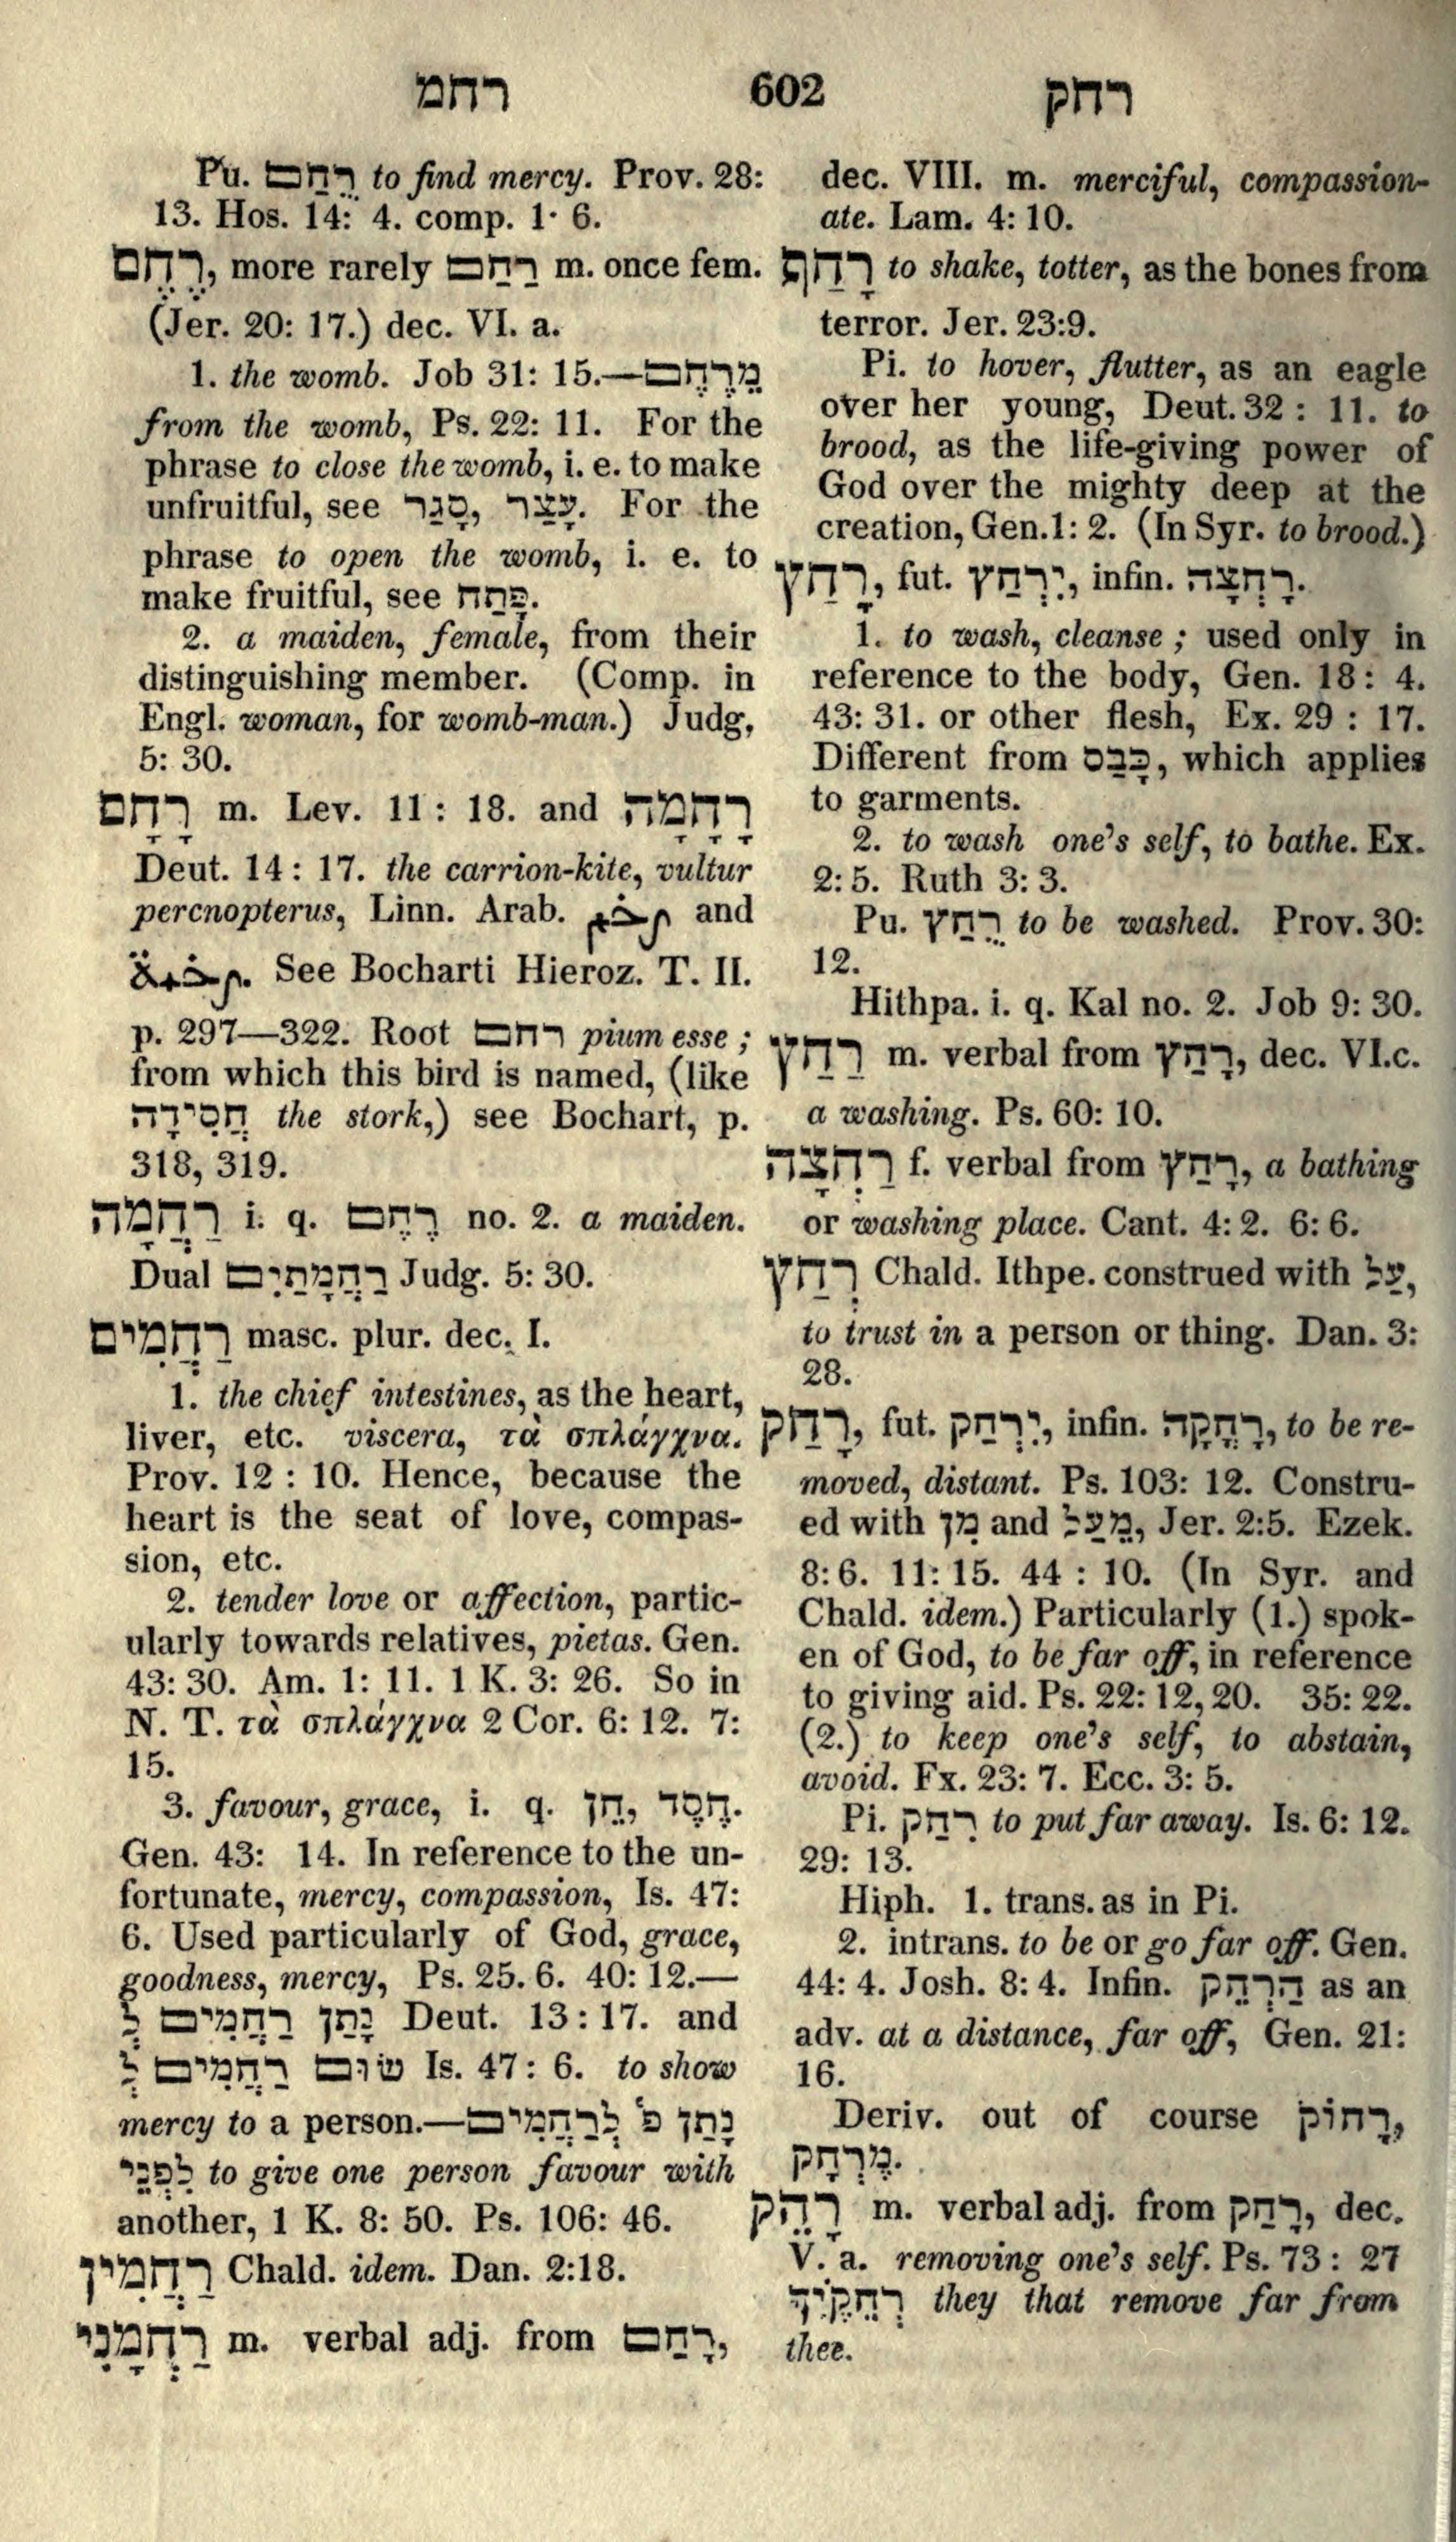 רחמ 602 רחק
Pu. רֻחַם to find mercy. Prov. 28:
13. Hos. 14: 4. comp. 1· 6.
רֶחֶם, more rarely רַחַם m. once fem.
(Jer. 20: 17.) dec. VI. a.
1. the womb. Job 31: 15.—מֵרֶחֶם
from the womb, Ps. 22: 11. For the
phrase to close the womb, i. e. to make
unfruitful, see סָגַר, עָצַר. For the
phrase to open the womb, i. e. to
make fruitful, see פָּתַח.
2. a maiden, female, from their
distinguishing member. (Comp. in
Engl. woman, for womb-man.) Judg,
5: 30.
רָחָם m. Lev. 11 : 18. and רָחָמָה
Deut. 14 : 17. the carrion-kite, vultur
percnopterus, Linn. Arab. رخم and
رخمة. See Bocharti Hieroz. T. II.
p. 297—322. Root רחם pium esse ;
from which this bird is named, (like
חֲסִידָה the stork,) see Bochart, p.
318, 319.
רַחֲמָה i. q. רֶחֶם no. 2. a maiden.
Dual רַחֲמָתַיִם Judg. 5: 30.
רַחֲמִים masc. plur. dec. I.
1. the chief intestines, as the heart,
liver, etc. viscera, τὰ σπλάγχνα.
Prov. 12 : 10. Hence, because the
heart is the seat of love, compas-
sion, etc.
2. tender love or affection, partic-
ularly towards relatives, pietas. Gen.
43: 30. Am. 1: 11. 1 K. 3: 26. So in
N. T. τὰ σπλάγχνα 2 Cor. 6: 12. 7:
15.
3. favour, grace, i. q. חֵן, חֶסֶד.
Gen. 43: 14. In reference to the un-
fortunate, mercy, compassion, Is. 47:
6. Used particularly of God, grace,
goodness, mercy, Ps. 25. 6. 40: 12.—
נָתַן רַחֲמִים לְ Deut. 13 : 17. and
שׂוּם רַחֲמִים לְ Is. 47 : 6. to show
mercy to a person.—נָתַן פ׳ לְרַחֲמִים
לִפְנֵי to give one person favour with
another, 1 K. 8: 50. Ps. 106: 46.
רַחֲמִין Chald. idem. Dan. 2:18.
רַחֲמָנִי m. verbal adj. from רָחַם,
dec. VIII. m. merciful, compassion-
ate. Lam. 4: 10.
רָחַף to shake, totter, as the bones from
terror. Jer. 23:9.
Pi. to hover, flutter, as an eagle
over her young, Deut. 32 : 11. to
brood, as the life-giving power of
God over the mighty deep at the
creation, Gen. 1: 2. (In Syr. to brood.)
רָחַץ, fut. יִרְחַץ, infin. רָחְצָה.
1. to wash, cleanse ; used only in
reference to the body, Gen. 18 : 4.
43: 31. or other flesh, Ex. 29 : 17.
Different from כָּבַס, which applies
to garments.
2. to wash one's self, to bathe. Ex.
2: 5. Ruth 3: 3.
Pu. רֻחַץ to be washed. Prov. 30:
12.
Hithpa. i. q. Kal no. 2. Job 9: 30.
רַחַץ m. verbal from רָחַץ, dec. VI.c.
a washing. Ps. 60: 10.
רַחְצָה f. verbal from רָחַץ, a bathing
or washing place. Cant. 4: 2. 6: 6.
רְחַץ Chald. Ithpe. construed with עַל,
to trust in a person or thing. Dan. 3:
28.
רָחַק, fut. יִרְחַק, infin. רָחֳקָה, to be re-
moved, distant. Ps. 103: 12. Constru-
ed with מִן and מֵעַל, Jer. 2:5. Ezek.
8: 6. 11: 15. 44 : 10. (In Syr. and
Chald. idem.) Particularly (1.) spok-
en of God, to be far off, in reference
to giving aid. Ps. 22: 12, 20. 35: 22.
(2.) to keep one's self, to abstain,
avoid. Fx. 23: 7. Ecc. 3: 5.
Pi. רִחַק to put far away. Is. 6: 12.
29: 13.
Hiph. 1. trans. as in Pi.
2. intrans. to be or go far off. Gen.
44: 4. Josh. 8: 4. Infin. הַרְחֵק as an
adv. at a distance, far off, Gen. 21:
16.
Deriv. out of course רָחוֹק,
מֶרְחָק.
רָחֵק m. verbal adj. from רָחַק, dec.
V. a. removing one's self. Ps. 73 : 27
רְחֵקֶיךָ they that remove far from
thee.